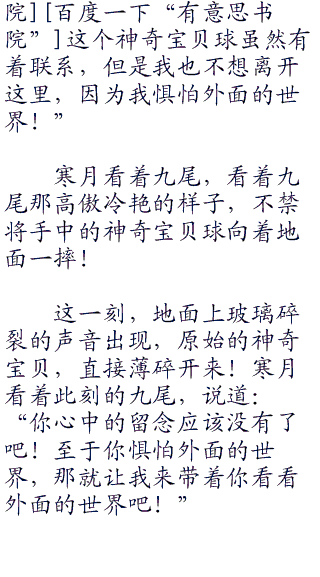 院][百度一下“有意思书
院”]这个神奇宝贝球虽然有
着联系，但是我也不想离开
这里，因为我惧怕外面的世
界！”
寒月看着九尾，看着九
尾那高傲冷艳的样子，不禁
将手中的神奇宝贝球向着地
面一摔！
这一刻，地面上玻璃碎
裂的声音出现，原始的神奇
宝贝，直接薄碎开来！寒月
看着此刻的九尾，说道：
“你心中的留念应该没有了
吧！至于你惧怕外面的世
界，那就让我来带着你看看
外面的世界吧！”